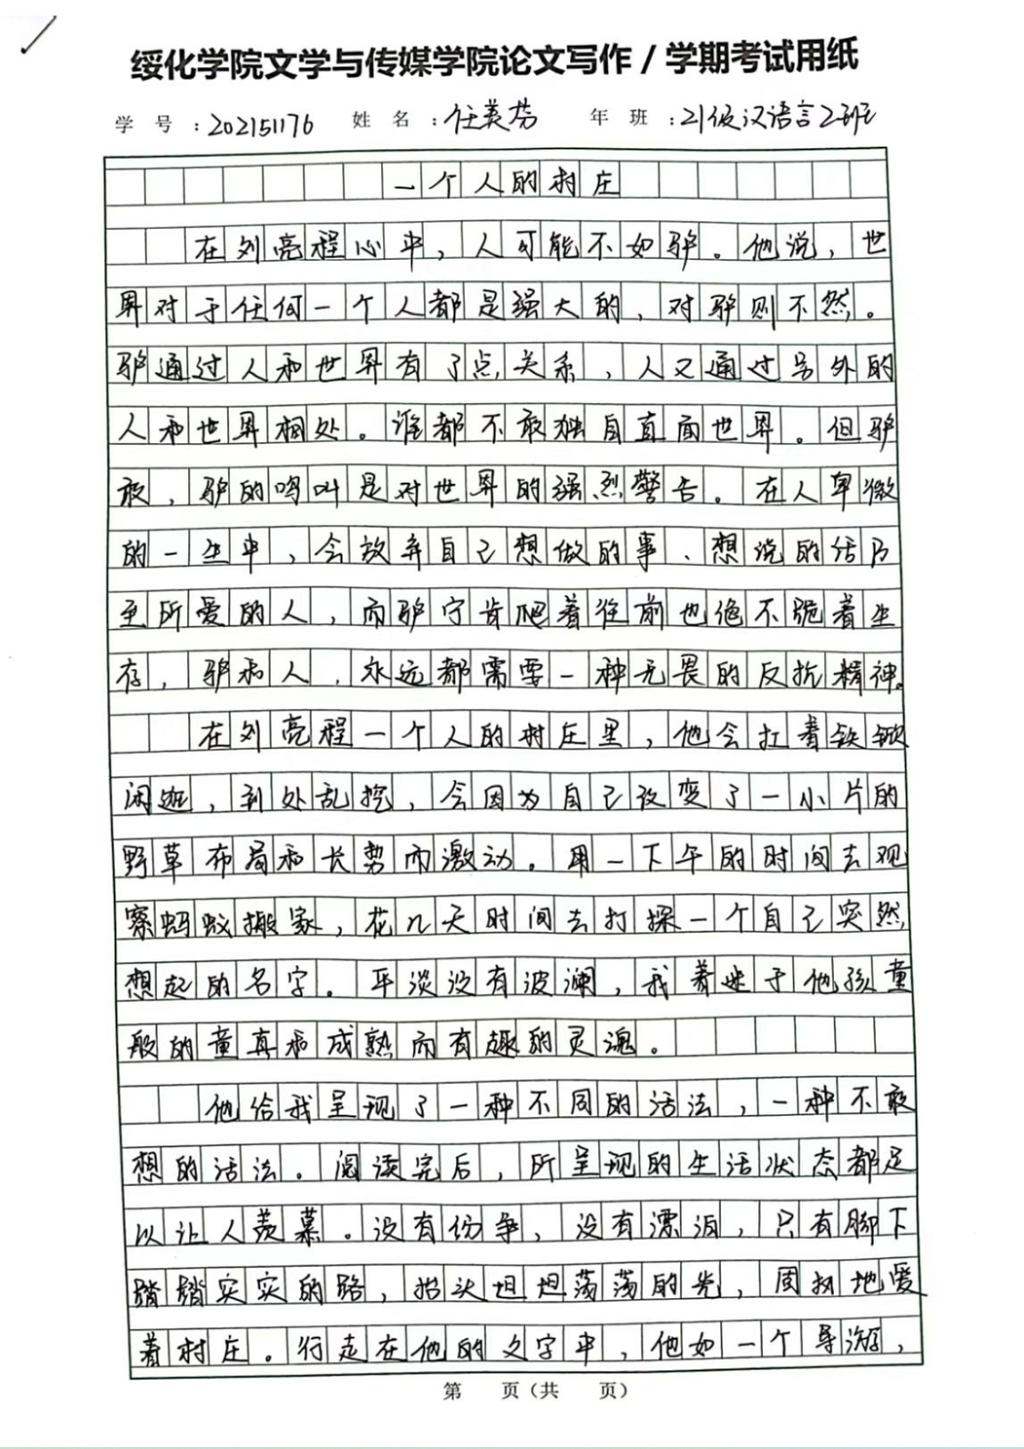 绥化学院文学与传媒学院论文写作 / 学期考试用纸
学 号 :202151176 姓 名 :任美芬 年 班 :21级汉语言2班
一个人的村庄
在刘亮程心中,人可能不如驴。他说,世
界对于任何一个人都是强大的,对驴则不然。
驴通过人和世界有了点关系,人又通过另外的
人和世界相处。谁都不敢独自直面世界。但驴
敢,驴的鸣叫是对世界的强烈警告。在人卑微
的一生中,会放弃自己想做的事、想说的话乃
至所爱的人,而驴宁肯爬着往前也绝不跪着生
存,驴和人,永远都需要一种无畏的反抗精神。
在刘亮程一个人的村庄里,他会扛着铁锨
闲逛,到处乱挖,会因为自己改变了一小片的
野草布局和长势而激动。用一下午的时间去观
察蚂蚁搬家,花几天时间去打探一个自己突然
想起的名字。平淡没有波澜,我着迷于他孩童
般的童真和成熟而有趣的灵魂。
他给我呈现了一种不同的活法,一种不敢
想的活法。阅读完后,所呈现的生活状态都足
以让人羡慕。没有纷争,没有漂泊,只有脚下
踏踏实实的路,抬头坦坦荡荡的光,固执地爱
着村庄。行走在他的文字中,他如一个导游,
第 页(共 页)